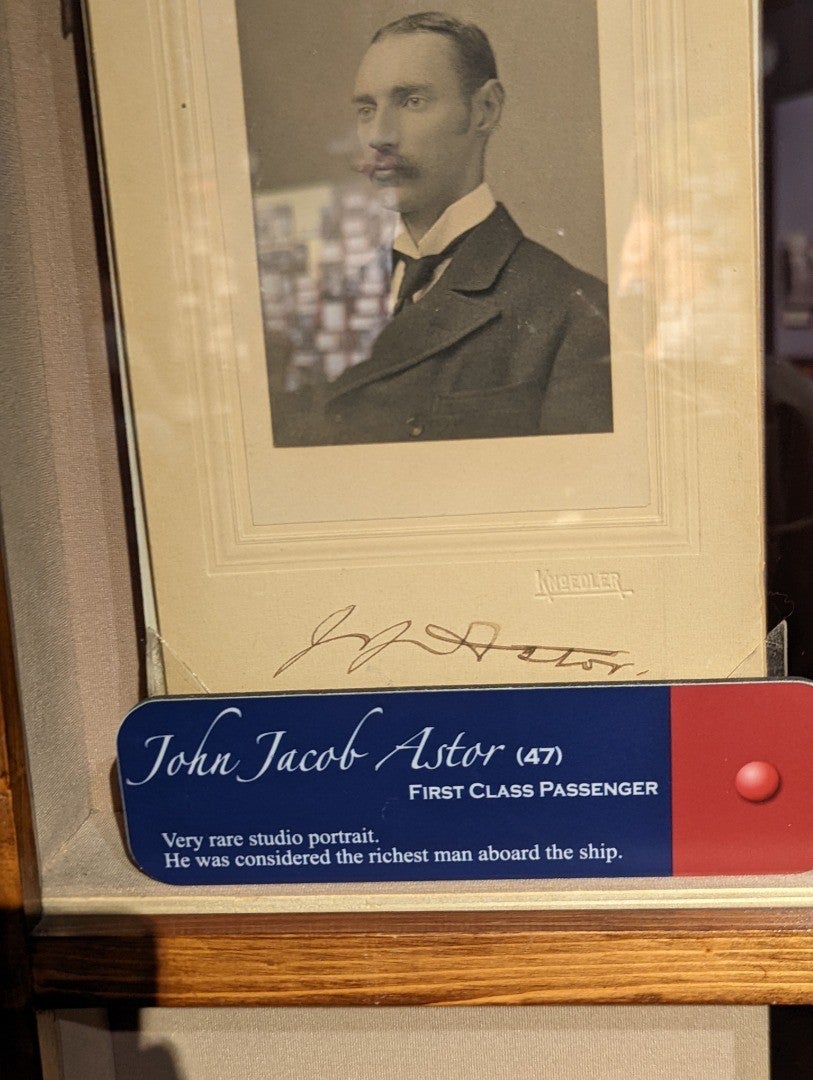 KNOEDLER
J J Astor.
John Jacob Astor (47)
FIRST CLASS PASSENGER
Very rare studio portrait.
He was considered the richest man aboard the ship.